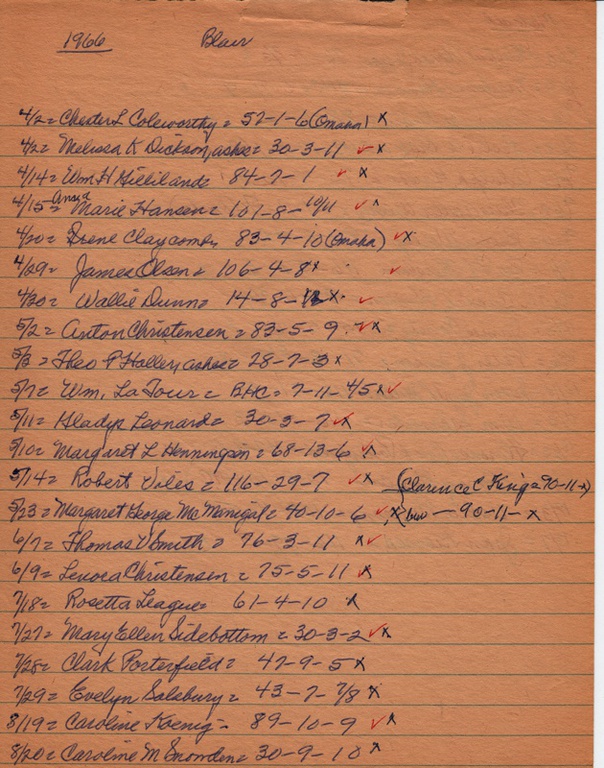 1966 Blair
4/2= Chester L Coleworthy= 52-1-6 (Omaha) x
4/2= Melissa K Dickson, ashes= 30-3-11 ✓ x
4/14= Wm H Gilliland= 84-7-1 ✓ x
4/15= Ansgd Marie Hansen= 101-8-10/11 ✓ x
4/20= Irene Claycomb, 83-4-10 (Omaha) ✓x
4/29= James Olsen= 106-4-8x ✓
4/30= Wallie Dunn= 14-8- x ✓
5/2= Anton Christensen= 83-5-9 ✓x
5/3= Theo P Halley, ashes= 28-7-3 x
5/7= Wm. La Tour= BHC= 7-11-4/5 x✓
5/11= Gladys Leonard= 30-3-7 ✓x
5/10= Margaret L Henningsen= 68-13-6 ✓x
5/14= Robert Viles= 116-29-7 ✓x (Clarence C King=90-11-x)
5/23= Margaret George McManigal= 40-10-6 ✓x ( - 90-11- x
6/7= Thomas V Smith= 76-3-11 x✓
6/9= Lenora Christensen= 75-5-11 ✓x
7/18= Rosetta League= 61-4-10 x
7/27= Mary Ellen Sidebottom= 30-3-2 ✓x
7/28= Clark Porterfield= 47-9-5 x
7/29= Evelyn Salsbury= 43-7-7/8 x
8/19= Caroline Koenig- 89-10-9 ✓x
8/20= Caroline M Snowden= 30-9-10 x